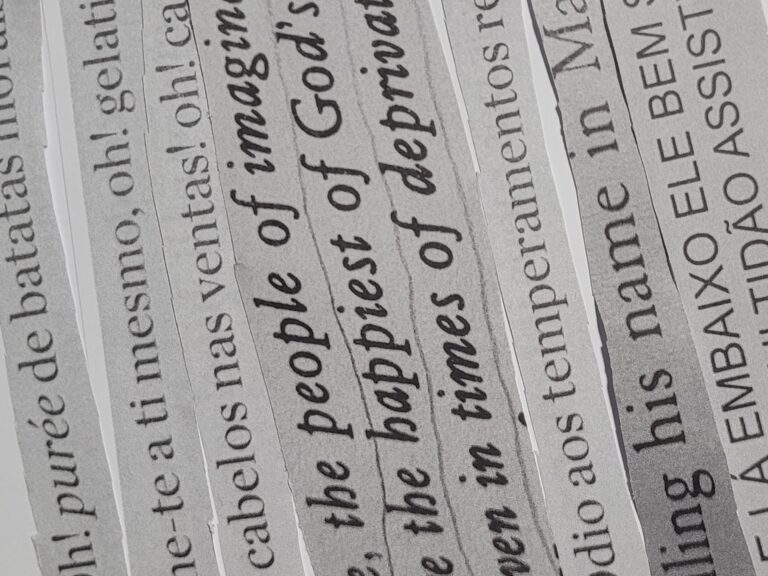 oh! purée de batatas
ne-te a ti mesmo, oh! gelati
cabelos nas ventas! oh! ca
the people of imagin
e the happiest of God's
ven in times of deprivat
dio aos temperamentos re
ling his name in Ma
E LÁ EMBAIXO ELE BEM
ASSIST